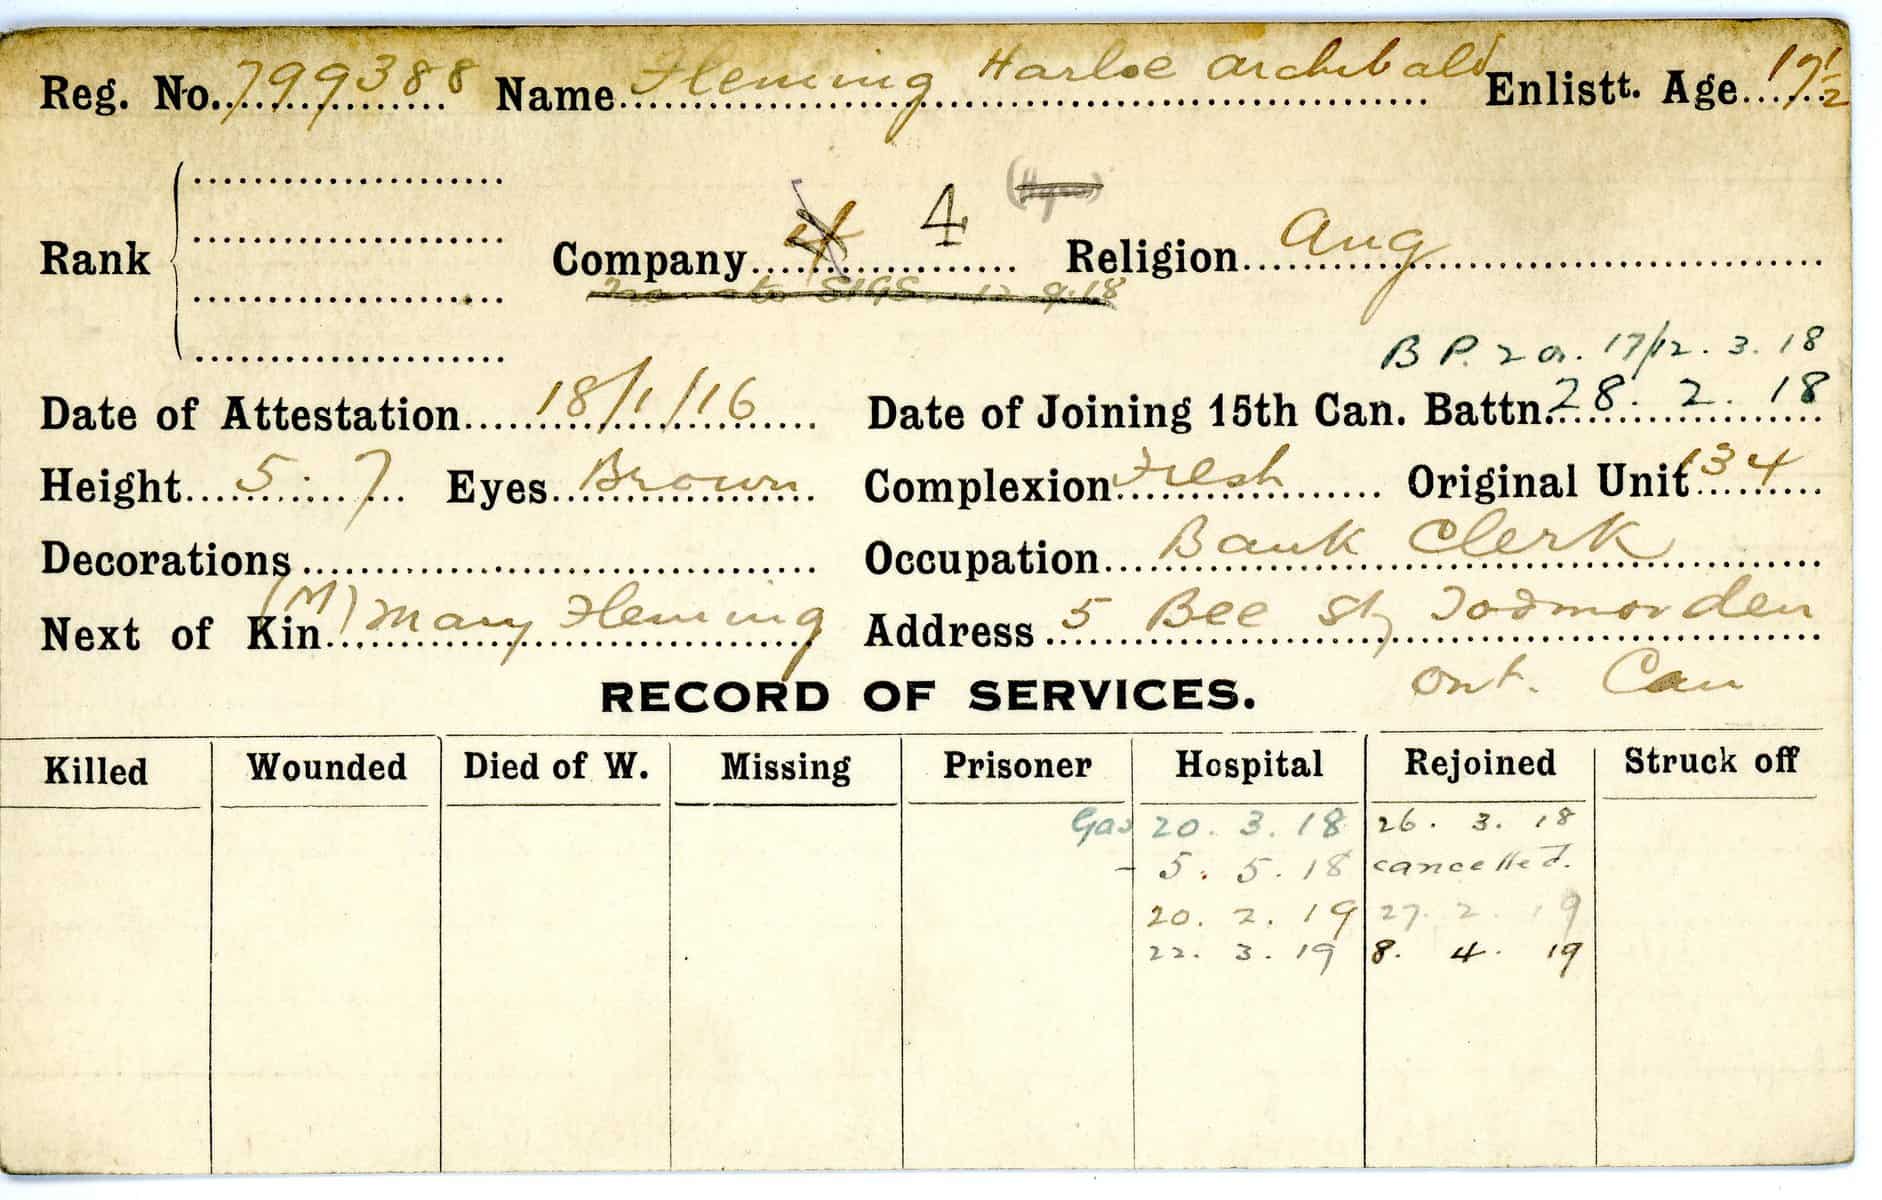 Reg. No. 799388 Name Fleming Harloe Archibald Enlistt. Age 17 1/2
4
Rank Company 4 Religion Ang
SIGS 9.18
B P. 2 a. 17/12. 3. 18
Date of Attestation 18/1/16 Date of Joining 15th Can. Battn. 28. 2. 18
Height 5. 7 Eyes Brown Complexion Fresh Original Unit 134
Decorations Occupation Bank Clerk
Next of Kin (M) Mary Fleming Address 5 Bee St, Todmorden
Ont. Can
RECORD OF SERVICES.
Killed Wounded Died of W. Missing Prisoner Hospital Rejoined Struck off
Gas 20. 3. 18 26. 3. 18
- 5. 5. 18 cancelled.
20. 2. 19 27. 2. 19
22. 3. 19 8. 4. 19